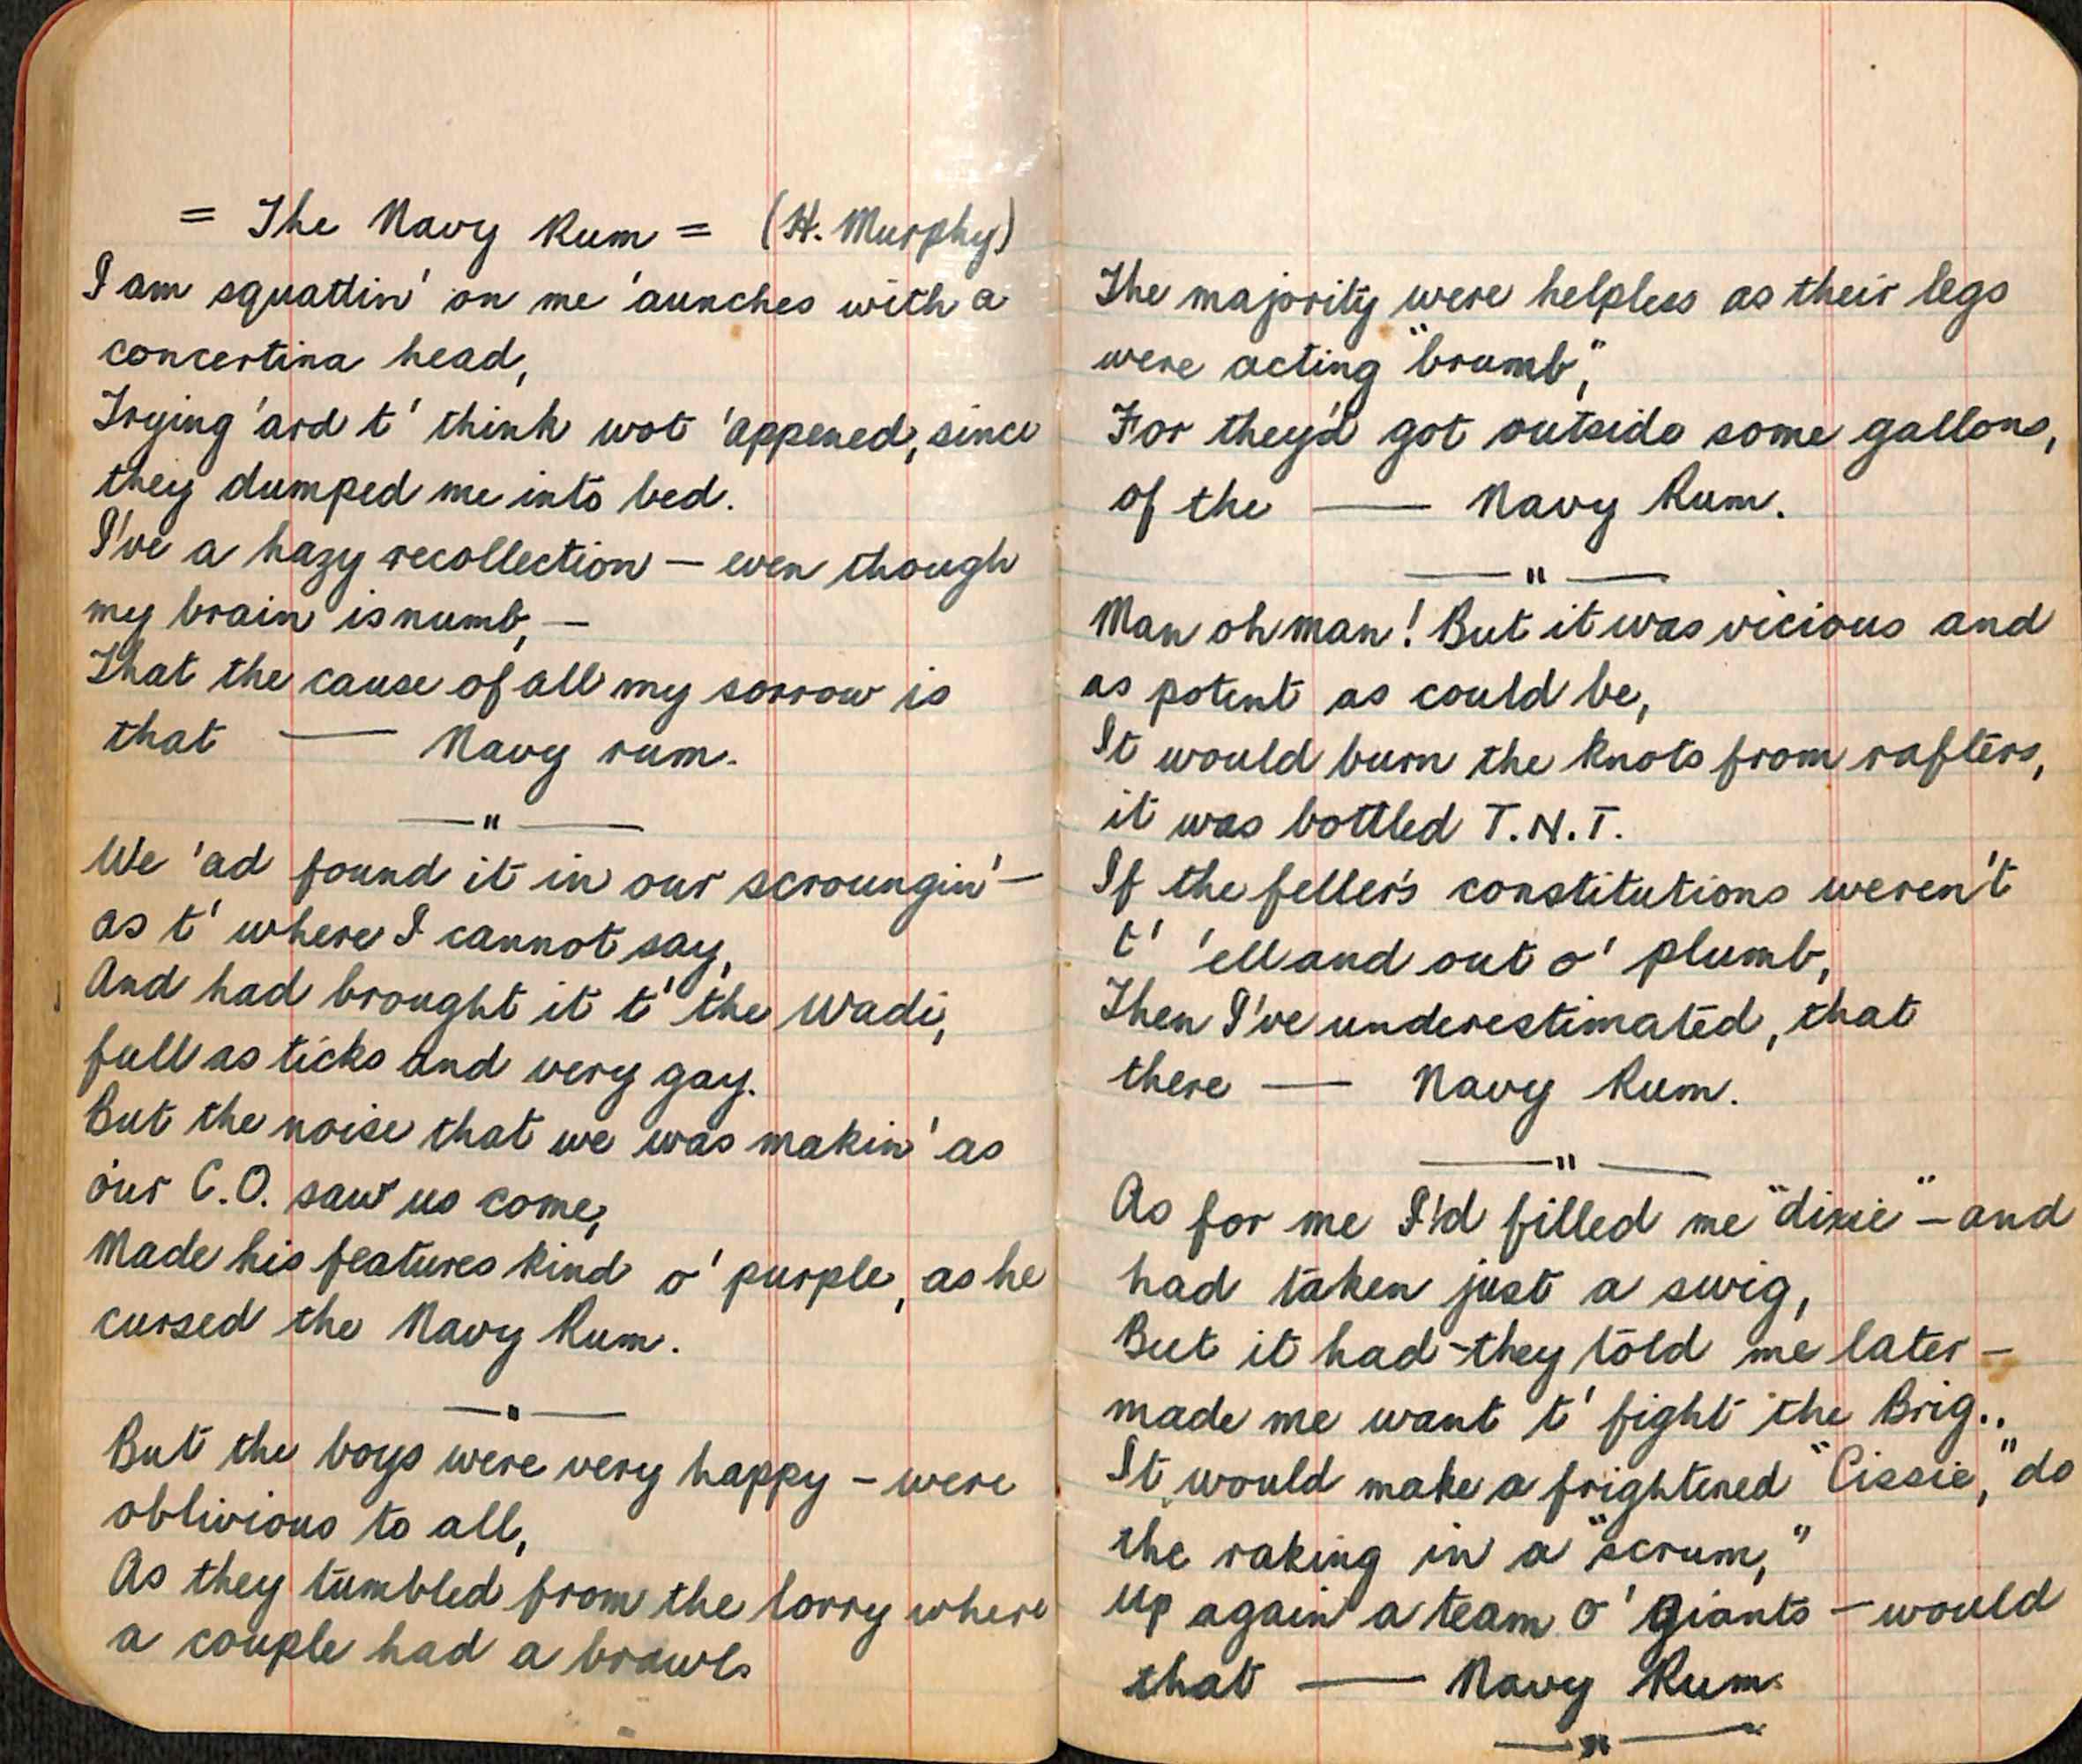 = The Navy Rum = (H. Murphy)
I am squattin' on me 'aunches with a
concertina head,
Trying 'ard t' think wot 'appened, since
they dumped me into bed.
I've a hazy recollection – even though
my brain is numb, –
That the cause of all my sorrow is
that —— Navy rum.
——"——
We 'ad found it in our scroungin' –
as t' where I cannot say,
And had brought it t' the Wadi,
full as ticks and very gay.
But the noise that we was makin' as
our C.O. saw us come,
Made his features kind o' purple, as he
cursed the Navy Rum.
——"——
But the boys were very happy – were
oblivious to all,
As they tumbled from the lorry where
a couple had a brawl.
The majority were helpless as their legs
were acting "brumb",
For they'd got outside some gallons,
of the —— Navy Rum.
——"——
Man oh man! But it was vicious and
as potent as could be,
It would burn the knots from rafters,
it was bottled T.N.T.
If the feller's constitutions weren't
t' 'ell and out o' plumb,
Then I've underestimated, that
there —— Navy Rum.
——"——
As for me I'd filled me "dixie" – and
had taken just a swig,
But it had – they told me later –
made me want t' fight the Brig..
It would make a frightened "Cissie," do
the raking in a "scrum,"
Up again a team o' giants – would
that —— Navy Rum.
——"——